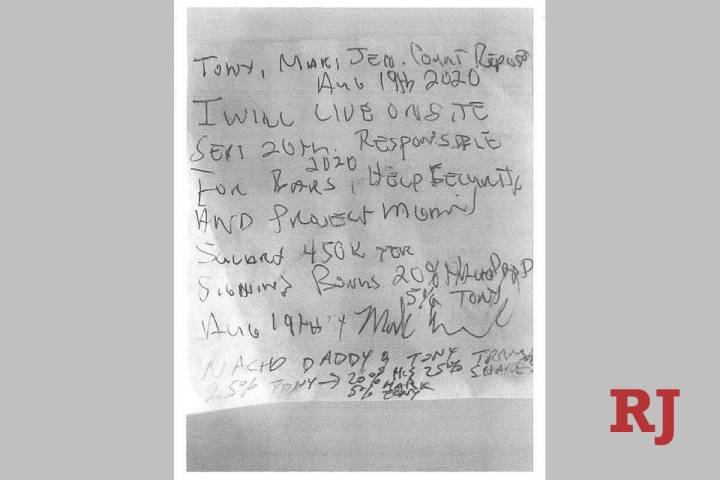 TONY, MARK, JEN. Court Report
Aug 19th 2020
I WILL LIVE ON SITE
SEPT 20th. RESPONSIBLE
2020
FOR BARS, HELP SECURITY
AND PROJECT
450K PER
SIGNING BONUS 20%
5% TONY
Aug 19th Mark
NACHO DADDY TONY TRANS
25% TONY → 20% HIS 25% SHARES
5% MARK
TONY
RJ